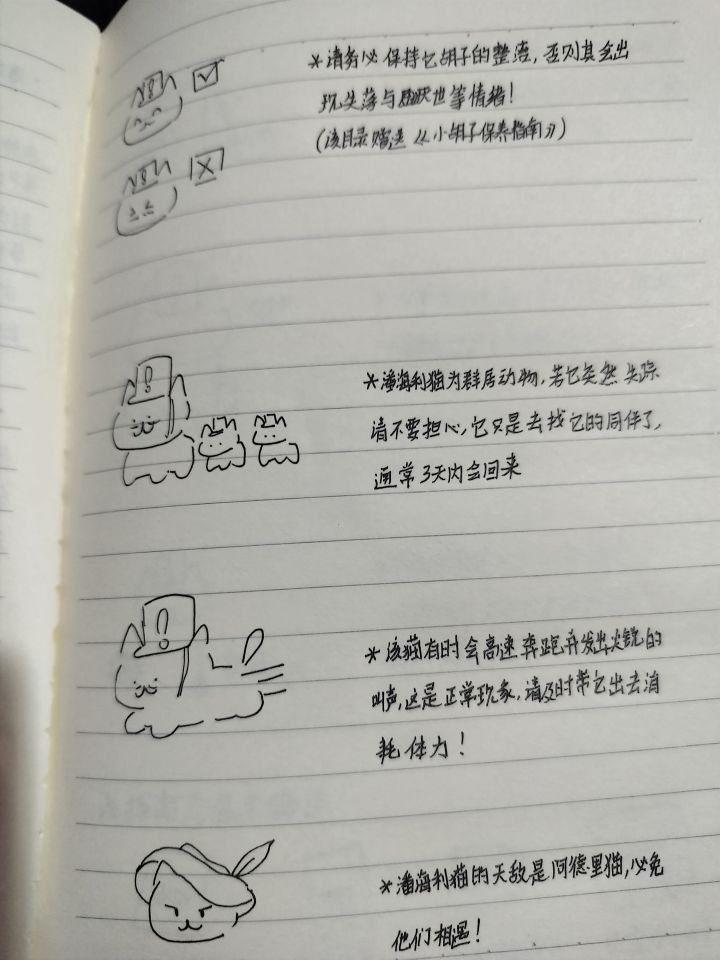 *请务必保持它胡子的整洁，否则其会出
现失落与厌世等情绪！
（该目录赠送《小胡子保养指南》）
*潘海利猫为群居动物，若它突然失踪
请不要担心，它只是去找它的同伴了，
通常3天内会回来
*该猫有时会高速奔跑并发出火铳的
叫声，这是正常现象，请及时带它出去消
耗体力！
*潘海利猫的天敌是阿德里猫，必免
他们相遇！